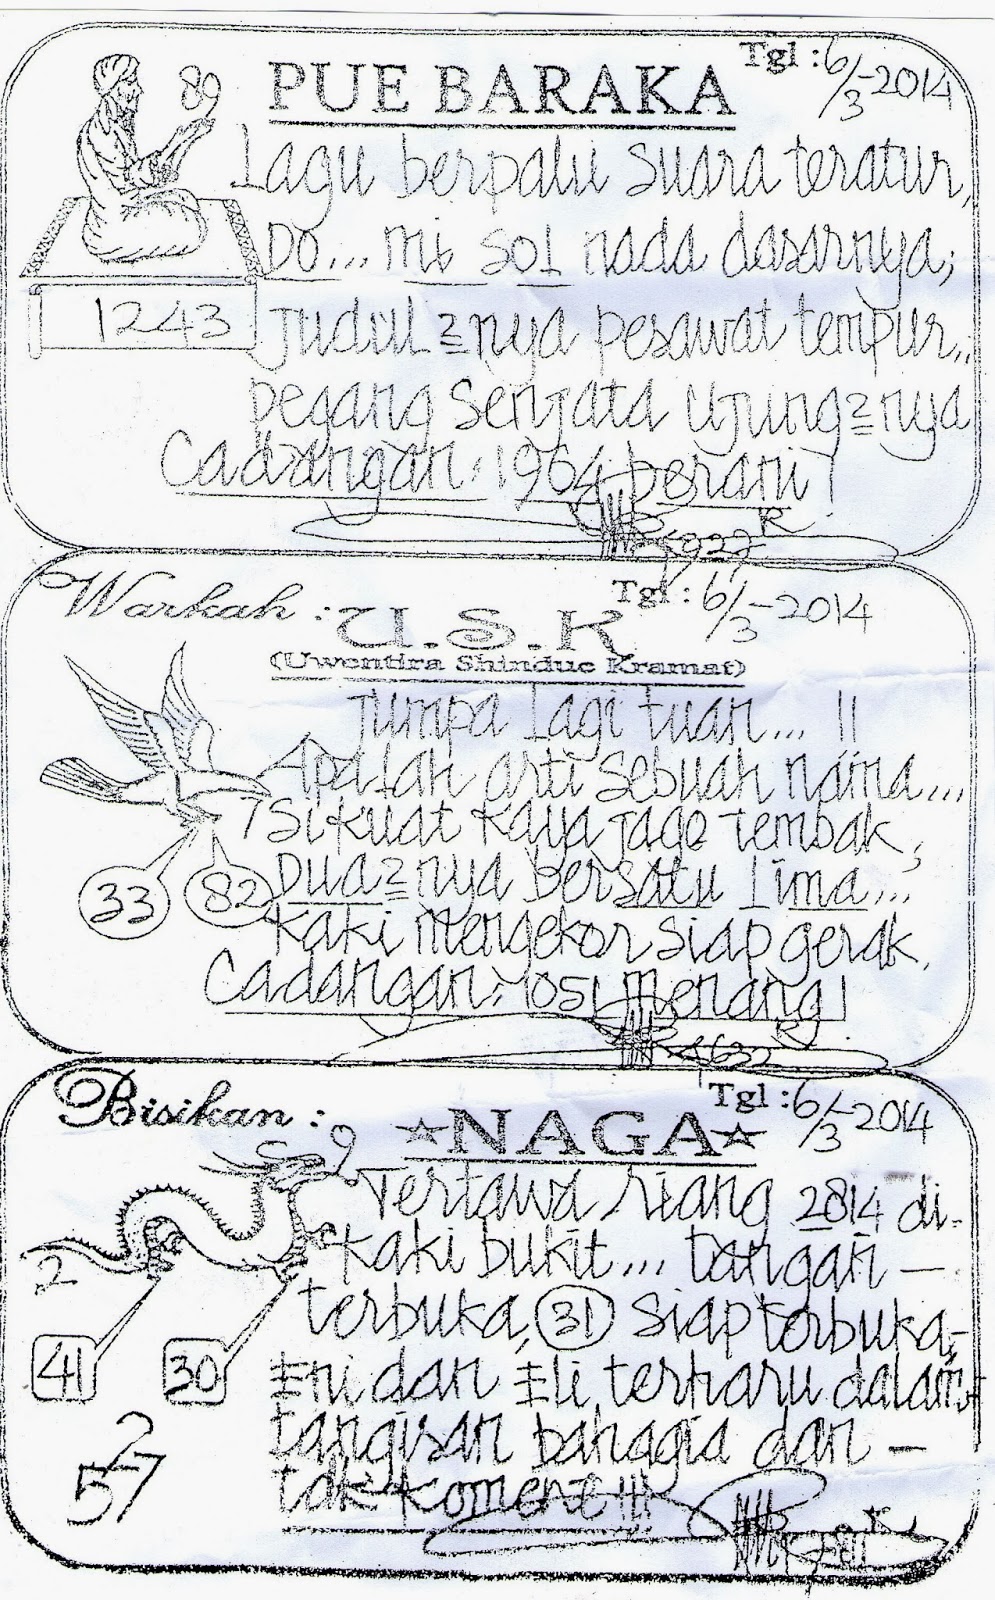 PUE BARAKA
Tgl : 6/3-2014
89
Lagu berpalu suara teratur,
DO... mi sol nada dasarnya;
1243
Judul2nya pesawat tempur..
pegang senjata ujung2nya
Cadangan: 1964 berani !
Warkah : U.S.K
Tgl : 6/3-2014
(Uwentira Shindue Kramat)
Jumpa lagi tuan... !!
Apalah arti sebuah nama...
7 Sikuat kaya jago tembak;
33 82 Dua2nya bersatu lima...
kaki mengekor siap gerak.
Cadangan: 7051 menang!
Bisikan : NAGA
Tgl : 6/3-2014
9
Tertawa riang 2814 di-
kaki bukit... tangan -
2
terbuka, 31 siap terbuka,-
41 30
Eni dan Eli terharu dalam
tangisan bahagia dan -
2
57
tak koment !!!